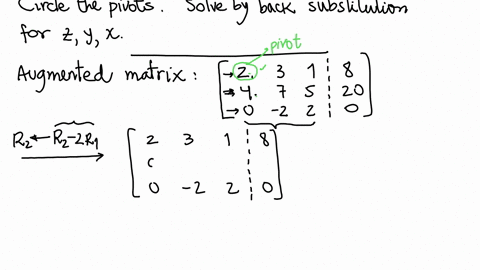 Circle the pivots. Solve by back substitution
for z, y, x.
pivot
Augmented matrix: [→2. 3 1 | 8
→4. 7 5 | 20
→0 -2 2 | 0]
R₂←R₂-2R₁ [2 3 1 | 8
c
0 -2 2 | 0]